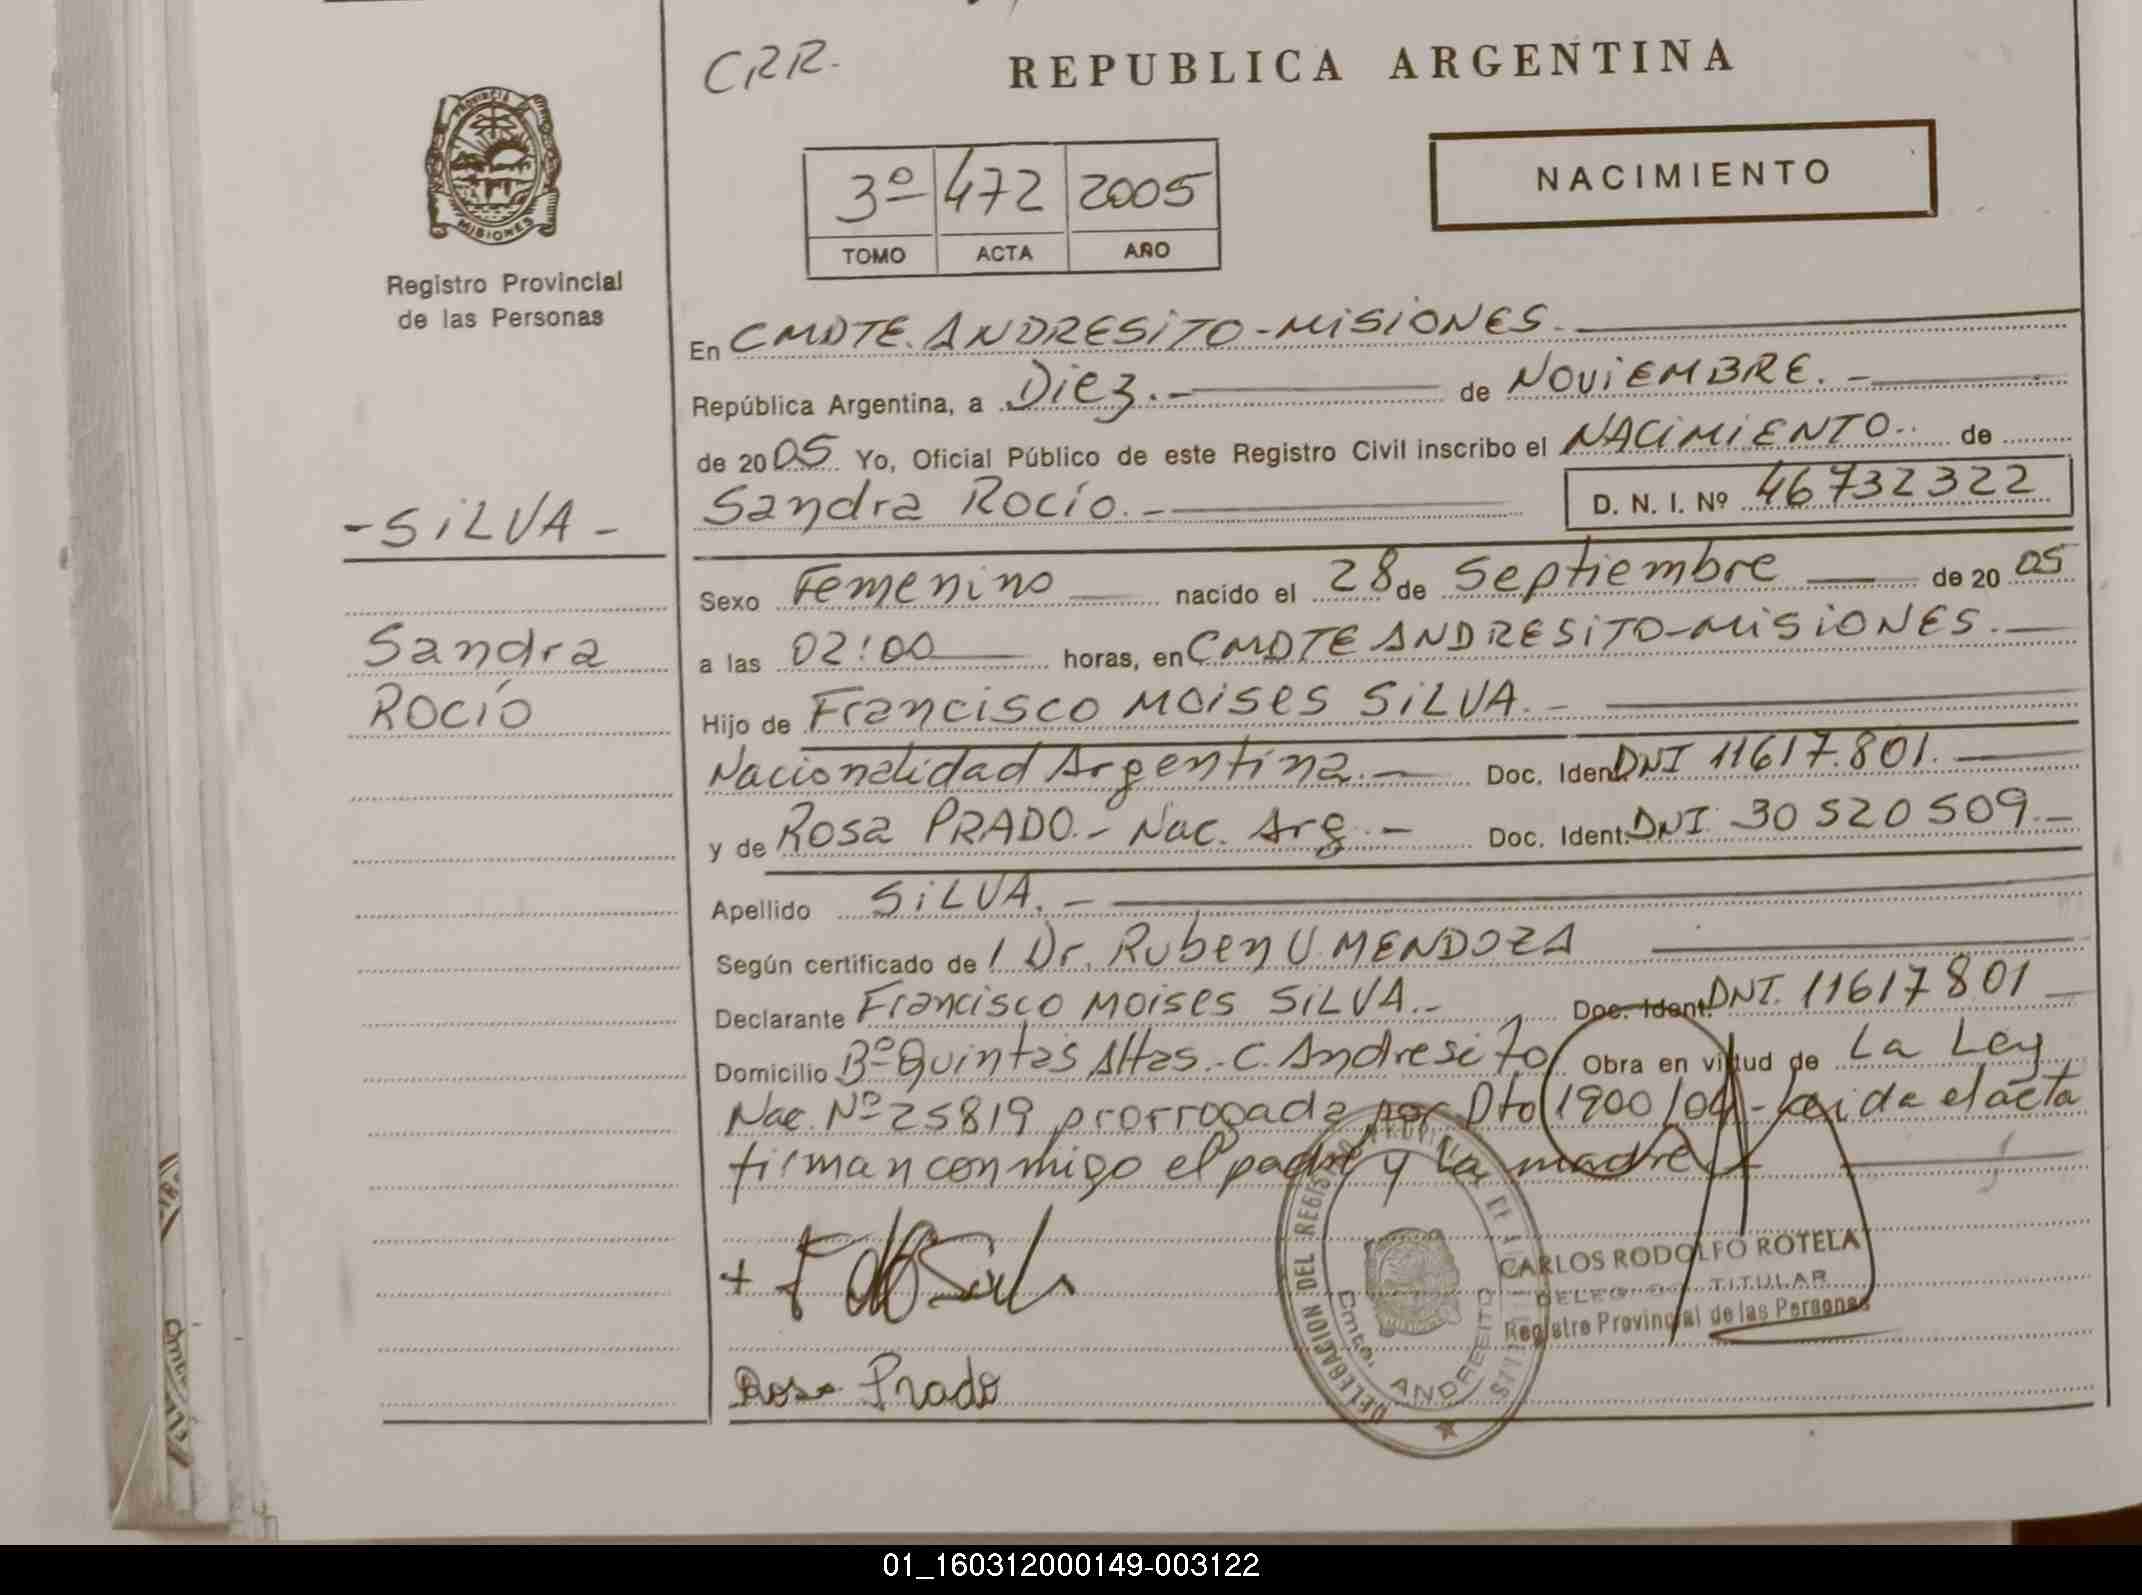 CRR.
REPUBLICA ARGENTINA
PROVINCIA DE MISIONES
Registro Provincial
de las Personas
3º 472 2005
TOMO ACTA AÑO
NACIMIENTO
En CMDTE. ANDRESITO - MISIONES.
República Argentina, a Diez. - de NOVIEMBRE. -
de 2005 Yo, Oficial Público de este Registro Civil inscribo el NACIMIENTO.. de
Sandra Rocío. - D. N. I. Nº 46732322
- SILVA -
Sandra
Rocío
Sexo Femenino nacido el 28 de Septiembre de 2005
a las 02:00 horas, en CMDTE ANDRESITO-MISIONES. -
Hijo de Francisco Moises SILVA. -
Nacionalidad Argentina. - Doc. Ident. DNI 11617.801. -
y de Rosa PRADO. - Nac. Arg. - Doc. Ident. DNI 30520509. -
Apellido SILVA. -
Según certificado de / Dr. Ruben U. MENDOZA
Declarante Francisco Moises SILVA. - Doc. Ident. DNI. 11617801
Domicilio Bº Quintas Altas. - C. Andresito Obra en virtud de La Ley
Nac. Nº 25819 prorrogada por Dto 1900/04 - Leida el acta
firman conmigo el padre y la madre
Rosa Prado
DELEGACION DEL REGISTRO PROVINCIAL DE LAS PERSONAS
Cmte. ANDRESITO
CARLOS RODOLFO ROTELA
DELEGADO TITULAR
Registro Provincial de las Personas
01_160312000149-003122